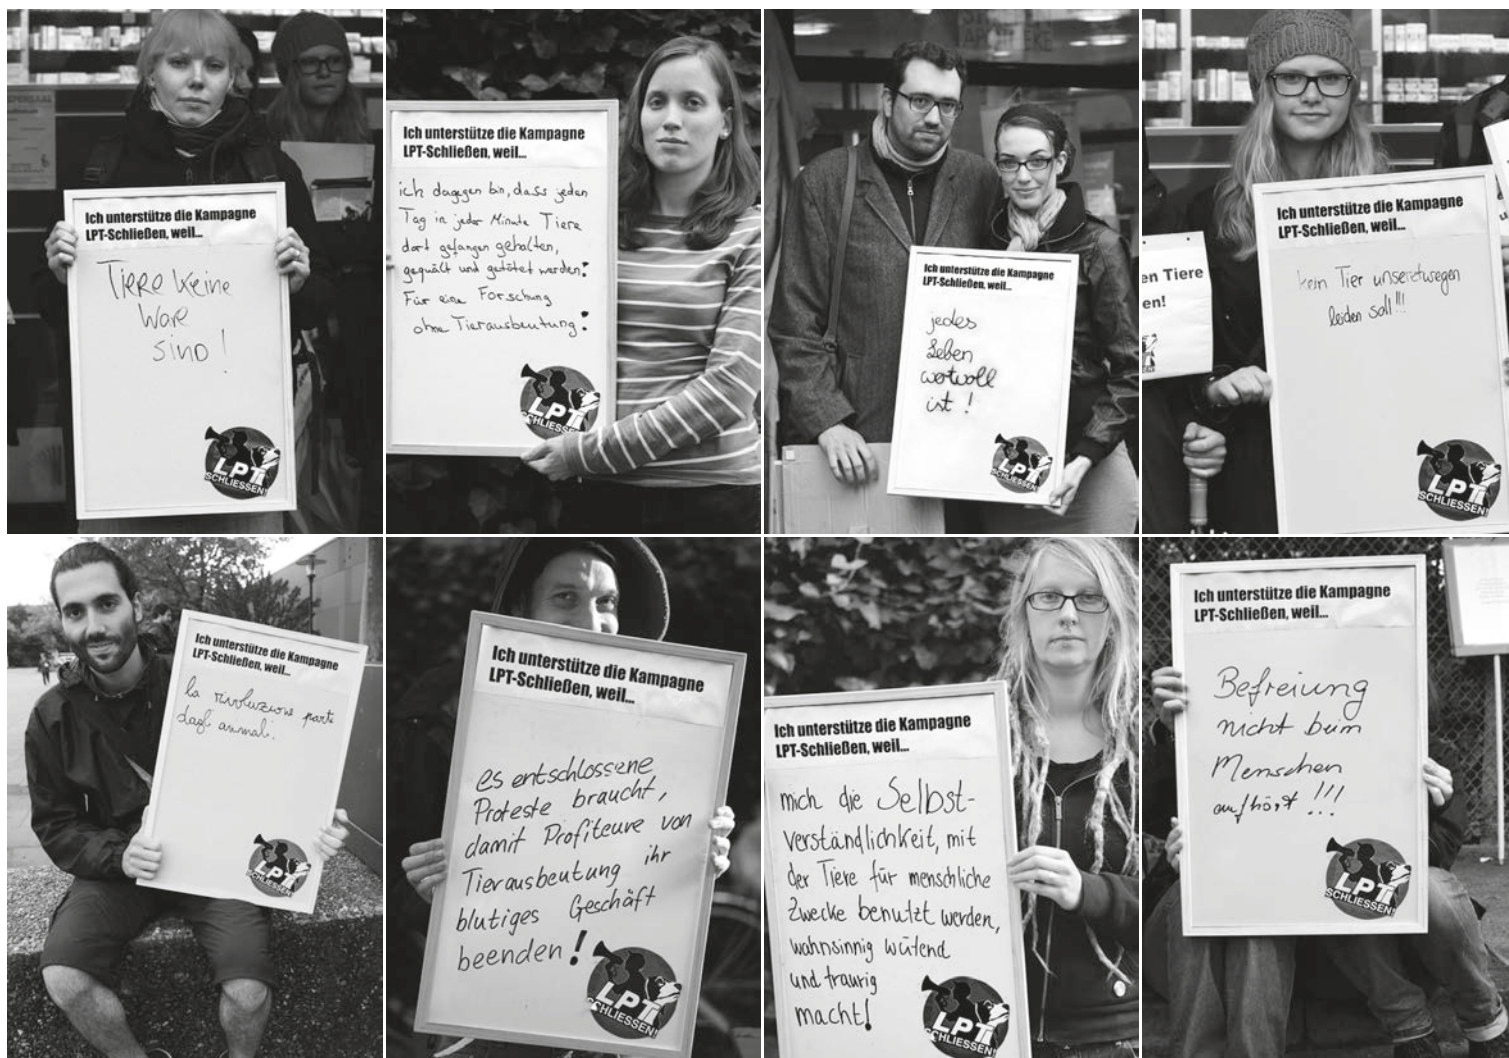 Ich unterstütze die Kampagne
LPT-Schließen, weil...
Tiere keine
Ware
sind!
LPT
SCHLIESSEN!
Ich unterstütze die Kampagne
LPT-Schließen, weil...
ich dagegen bin, dass jeden
Tag in jeder Minute Tiere
dort gefangen gehalten,
gequält und getötet werden!
Für eine Forschung
ohne Tierausbeutung!
LPT
SCHLIESSEN
APOTHEKE
Ich unterstütze die Kampagne
LPT-Schließen, weil...
jedes
Leben
wertvoll
ist!
LPT
SCHLIESSEN!
en Tiere
en!
Ich unterstütze die Kampagne
LPT-Schließen, weil...
kein Tier unseretwegen
leiden soll!!!
LPT
SCHLIESSEN!
Ich unterstütze die Kampagne
LPT-Schließen, weil...
la rivoluzione parte
dagli animali.
LPT
SCHLIESSEN!
Ich unterstütze die Kampagne
LPT-Schließen, weil...
es entschlossene
Proteste braucht,
damit Profiteure von
Tierausbeutung ihr
blutiges Geschäft
beenden!
LPT
SCHLIESSEN!
Ich unterstütze die Kampagne
LPT-Schließen, weil...
mich die Selbst-
verständlichkeit, mit
der Tiere für menschliche
Zwecke benutzt werden,
wahnsinnig wütend
und traurig
macht!
LPT
SCHLIESSEN!
Ich unterstütze die Kampagne
LPT-Schließen, weil...
Befreiung
nicht beim
Menschen
aufhört!!!
LPT
SCHLIESSEN!